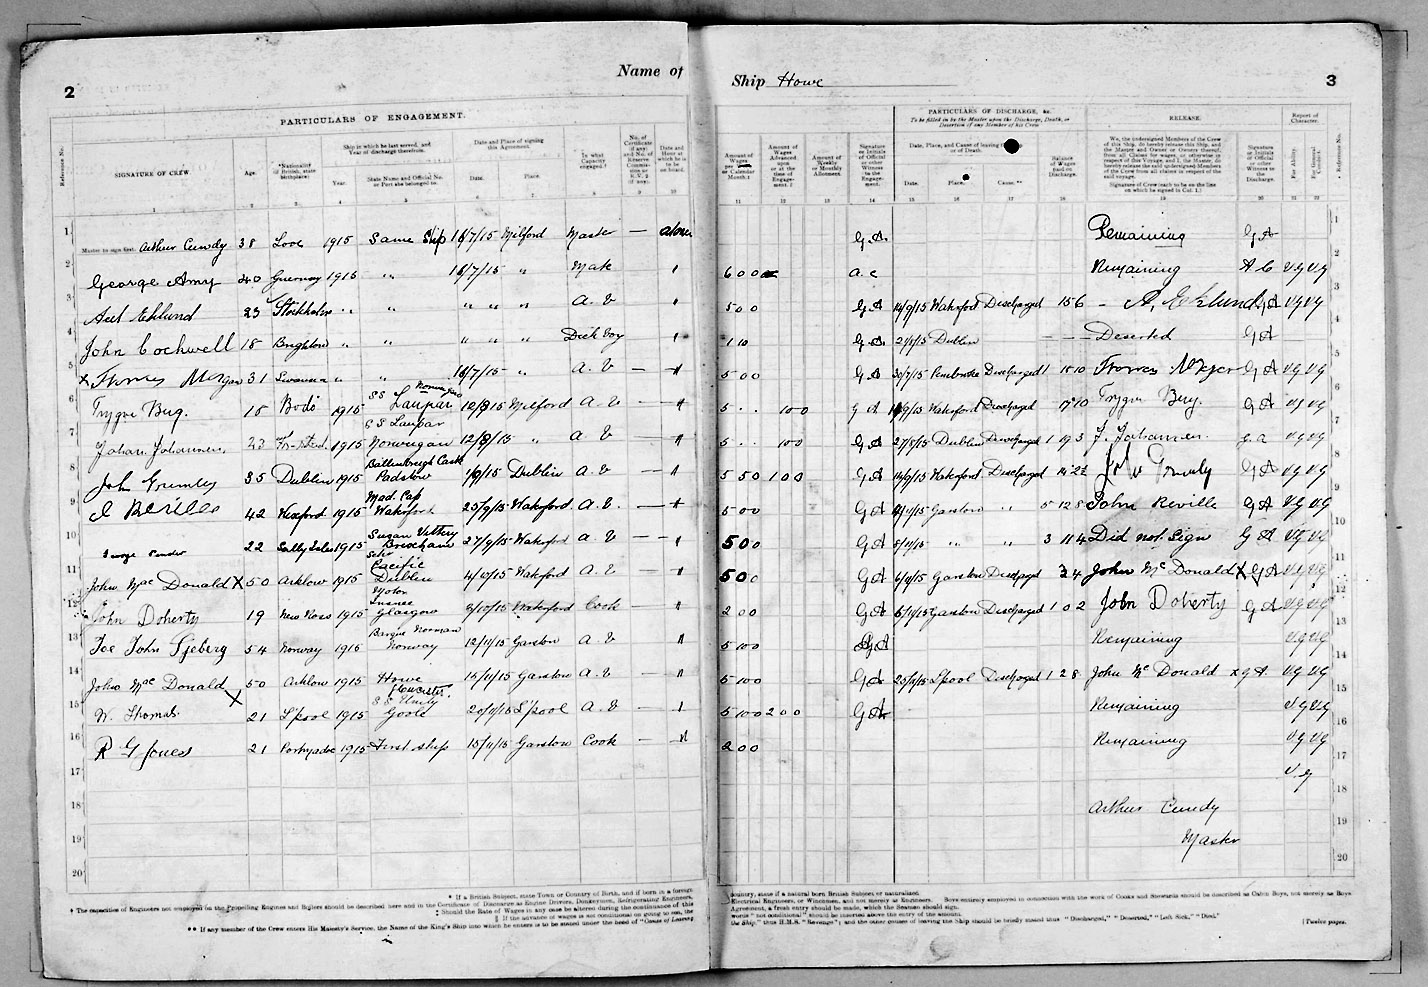 2
Name of
Ship Howe
3
PARTICULARS OF ENGAGEMENT.
PARTICULARS OF DISCHARGE, &c.
To be filled in by the Master upon the Discharge, Death, or Desertion of any Member of his Crew
RELEASE.
Report of Character.
Reference No.
SIGNATURE OF CREW.
Age.
*Nationality (if British, state birthplace).
Ship in which he last served, and Year of discharge therefrom.
Year.
State Name and Official No. or Port she belonged to.
Date and Place of signing this Agreement.
Date.
Place.
In what Capacity engaged.
Date and Hour at which he is to be on board.
Amount of Wages
Amount of Wages Advanced upon or at the time of Engagement.
Amount of Weekly or Monthly Allotment.
Signature or Initials of Official or other Witness to the Engagement.
Date, Place, and Cause of leaving Ship or of Death.
Date.
Place.
Cause.
Balance of Wages paid on Discharge.
We, the undersigned Members of the Crew of this Ship, do hereby release this Ship, and the Master and Owner or Owners thereof, from all Claims for wages, or otherwise in respect of this Voyage, and I, the Master, do hereby release the said undersigned Members of the Crew from all claims in respect of the said voyage.
Signature of Crew (each to be on the line on which he signed in Col. 1.)
Signature or Initials of Official or other Witness to the Discharge.
For Ability.
For General Conduct.
Reference No.
1 Master to sign first. Arthur Cundy 38 Looe 1915 Same Ship /7/15 Milford Master — G A Remaining G A 1
2 George Amy 40 Guernsey 1915 " /7/15 " Mate 6 0 0 a. c Remaining A C V g V g 2
3 Axel Eklund 23 Stockholm " " " " " A. B 5 0 0 G A 14/9/15 Waterford Discharged 15 6 - A, Eklund G A V g V g 3
4 John Cockwell 18 Brighton " " " " " Deck boy 1 10 G A Dublin — — — Deserted G A 4
5 X Thomas Morgan 31 Swansea " " /7/15 " A. B — 5 0 0 G A 30/7/15 Pembroke Discharged 1 15 10 G A V g V g 5
6 Trygve Bug. 18 Bodö 1915 S S Laupar Norwegian 12/8/15 Milford A. B — 5 . . 1 0 0 G A Waterford Discharged Trygve Bug. G A V g V g 6
7 Johan Johannesen, 23 1915 S S Laupar Norwegian 12/8/15 " A B — 5 . . 1 0 0 G A 27/8/15 Dublin Discharged 1 19 3 J. Johannesen. G. A V g V g 7
8 John Grumley 35 Dublin 1915 Padstow Dublin A. B — 5 5 0 1 0 0 G A 14/9/15 Waterford Discharged John Grumley G A V g V g 8
9 J Reville 42 Wexford 1915 Mad. Cap Waterford 25/9/15 Waterford A. B. — 5 0 0 G A Garston " 5 12 8 John Reville G A V g V g 9
10 22 1915 Susan Vittery Brixham 27/9/15 Waterford A B — 5 0 0 G A " " 3 11 4 Did not Sign G A V g V g 10
11 John Mac Donald X 50 Arklow 1915 Schr Pacific Dublin 4/10/15 Waterford A. B — 5 0 0 G A Garston Discharged 3 4 John Mc Donald X G A V g V g 11
12 John Doherty 19 New Ross 1915 Motor Glasgow 8/10/15 Waterford Cook — 2 0 0 G A Garston Discharged 1 0 2 John Doherty G A V g V g 12
13 John Sjeberg 54 Norway 1915 Barque Norman Norway 12/11/15 Garston A. B — 5 10 0 G A Remaining V g V g 13
14 John Mac Donald X 50 Arklow 1915 Howe Gloucester. 15/11/15 Garston A. B — 5 10 0 G A L'pool Discharged 1 2 8 John Mc Donald x G A. V g V g 14
15 W. Thomas. 21 L'pool 1915 S S Unity Goole 20/11/15 L'pool A. B — 5 10 0 2 0 0 G A Remaining V g V g 15
16 R G Jones 21 Portmadoc 1915 First Ship 15/11/15 Garston Cook — 2 0 0 Remaining V g V g 16
17 V. g 17
18 Arthur Cundy 18
19 Master 19
20 20
* If a British Subject, state Town or Country of Birth, and if born in a foreign country, state if a natural born British Subject or naturalized.
† The capacities of Engineers not employed on the Propelling Engines and Boilers should be described here and in the Certificate of Discharge as Engine Drivers, Donkeymen, Refrigerating Engineers, Electrical Engineers, or Winchmen, and not merely as Engineers. Boys entirely employed in connection with the work of Cooks and Stewards should be described as Cabin Boys, not merely as Boys
‡ Should the Rate of Wages in any case be altered during the continuance of this Agreement, a fresh entry should be made, which the Seaman should sign.
§ If the advance of wages is not conditional on going to sea, the words "not conditional" should be inserted above the entry of the amount.
** If any member of the Crew enters His Majesty's Service, the Name of the King's Ship into which he enters is to be stated under the head of "Cause of Leaving the Ship," thus H.M.S. "Revenge"; and the other causes of leaving the Ship should be briefly stated thus "Discharged," "Deserted," "Left Sick," "Died."
[Twelve pages.